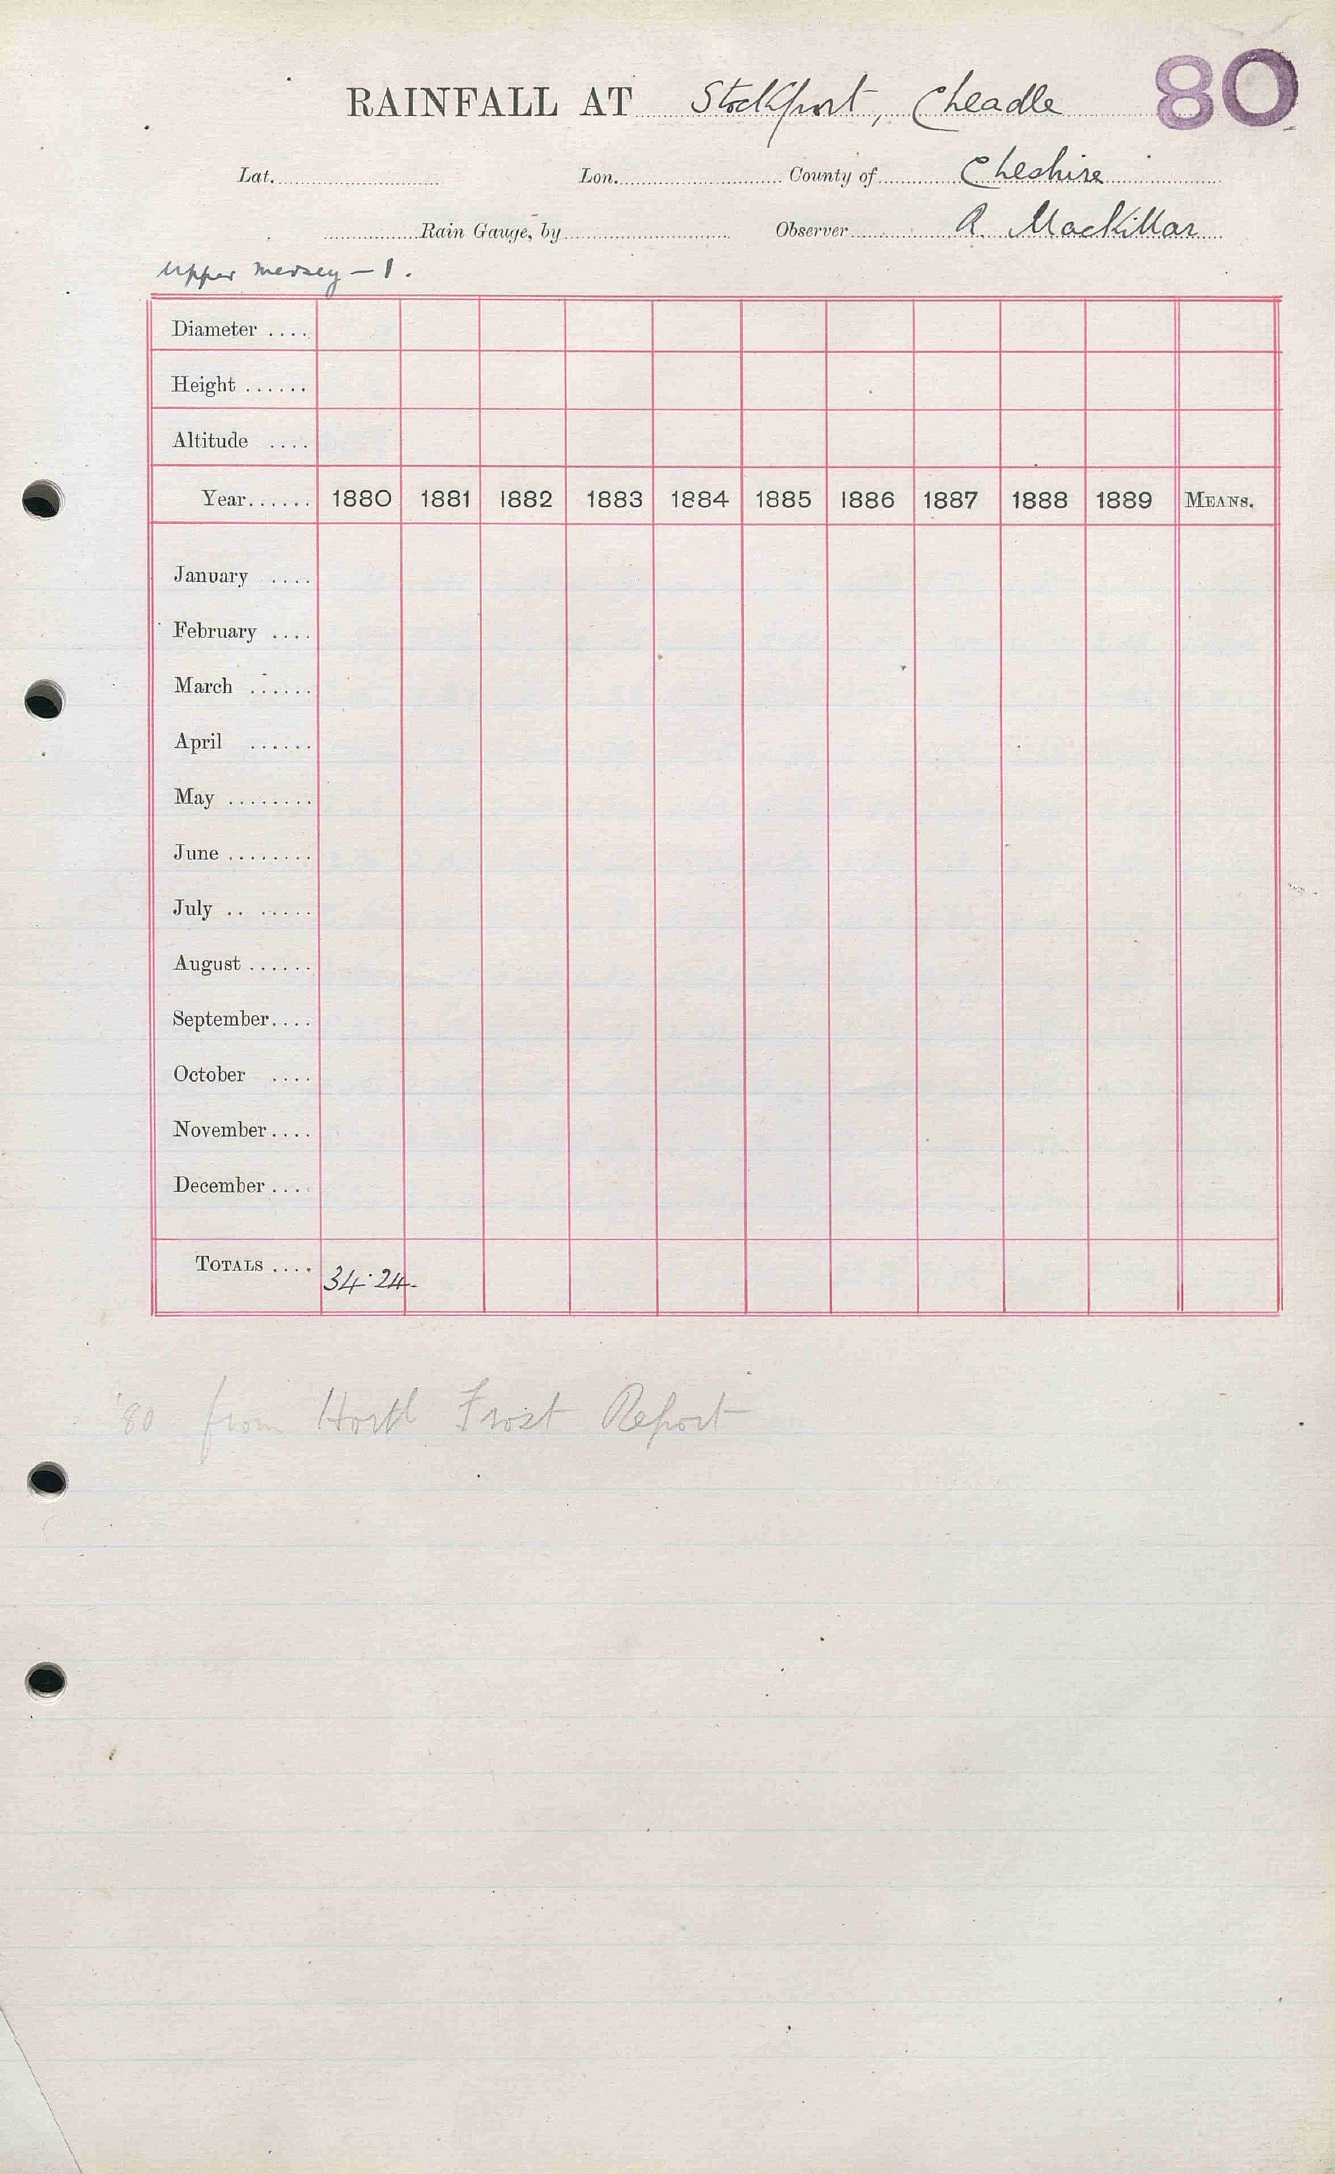 80
RAINFALL AT Stockport, Cheadle
Lat. Lon. County of Cheshire
Rain Gauge, by Observer A. MacKillar
Upper Mersey – 1.
Diameter ....
Height ......
Altitude ....
Year...... 1880 1881 1882 1883 1884 1885 1886 1887 1888 1889 MEANS.
January ....
February ....
March ......
April ......
May ........
June ........
July .. ......
August ......
September....
October ....
November....
December....
TOTALS .... 34.24.
'80 from Hortl Frost Report